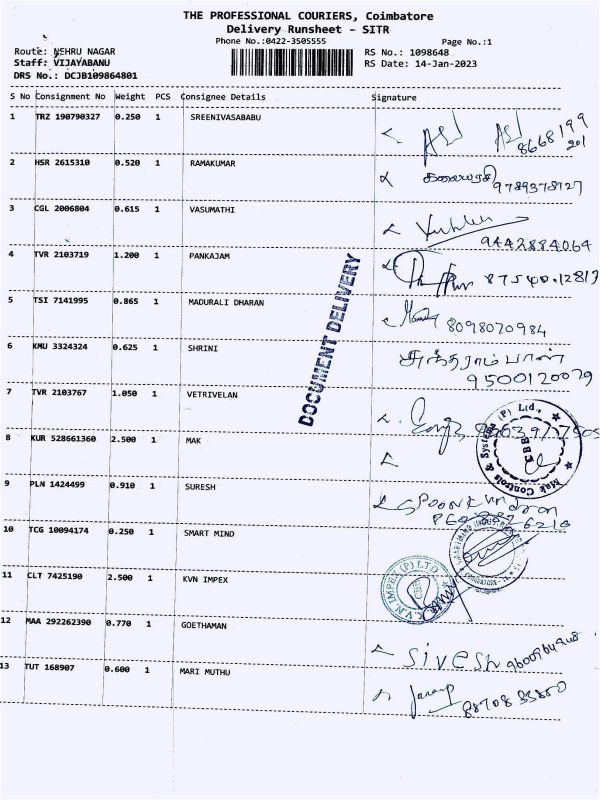 THE PROFESSIONAL COURIERS, Coimbatore
Delivery Runsheet - SITR
Phone No.:0422-3505555 Page No.:1
Route: NEHRU NAGAR RS No.: 1098648
Staff: VIJAYABANU RS Date: 14-Jan-2023
DRS No.: DCJB109864801
S No Consignment No Weight PCS Consignee Details Signature
1 TRZ 190790327 0.250 1 SREENIVASABABU
8668199
201
2 HSR 2615310 0.520 1 RAMAKUMAR
கலையரசி
9789378127
3 CGL 2006804 0.615 1 VASUMATHI
9442884064
4 TVR 2103719 1.200 1 PANKAJAM
87540.12813
5 TSI 7141995 0.865 1 MADURALI DHARAN
8098070984
DOCUMENT DELIVERY
6 KMU 3324324 0.625 1 SHRINI
9500120079
7 TVR 2103767 1.050 1 VETRIVELAN
8 KUR 528661360 2.500 1 MAK
Mak Controls & Systems (P) Ltd.,
CBE
9 PLN 1424499 0.910 1 SURESH
10 TCG 10094174 0.250 1 SMART MIND
11 CLT 7425190 2.500 1 KVN IMPEX
K.V.N IMPEX (P) LTD
12 MAA 292262390 0.770 1 GOETHAMAN
Sivesh
13 TUT 168907 0.600 1 MARI MUTHU
88708 33880